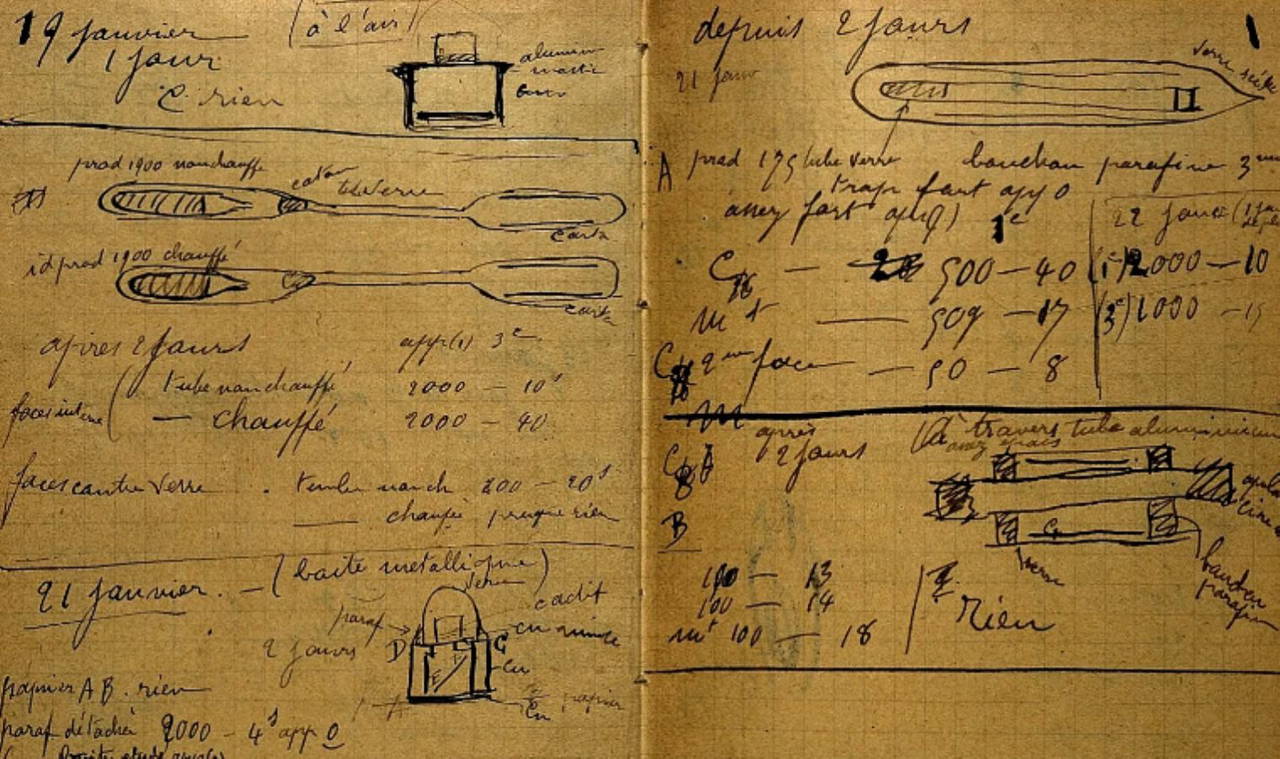 19 janvier (à l'air)
1 jour
C. rien
aluminium
mastic
prod 1900 non chauffé
tube verre
carton
id prod 1900 chauffé
carton
après 2 jours app(1) 3e
faces interne ( tube non chauffé 2000 — 10s
— chauffé 2000 — 40
faces contre verre . tube nonch 200 — 20s
— chauffé presque rien
21 janvier. — (boite metallique)
verre
paraf
cadit
cu mince
2 jours D C
E
Cu
papier
Cu
papier AB. rien
paraf détaché 2000 — 4s app 0
depuis 2 jours 1
21 janv
verre
A prod 175 tube verre bouchon parafine
trop fort app 0
assez fort app 1e
22 janv
C — 500 — 40 (1e) 2000 — 10
mt — 509 — 17 (3e) 1000 — 15
C 2me face — 50 — 8
M
après (à travers tube aluminium
2 jours
assez épais
B
C
verre
bouchon
paraffin
100 — 13
100 — 14
mt 100 — 18
rien